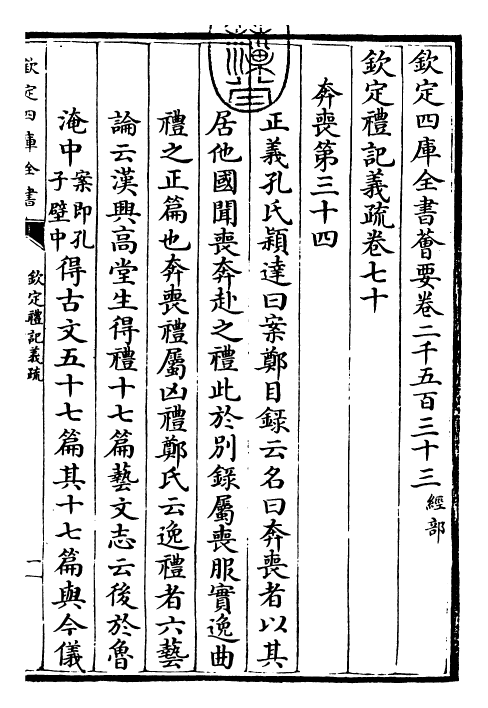 欽定四庫全書薈要卷二千五百三十三 經部
欽定禮記義疏卷七十
奔喪第三十四
正義孔氏穎達曰案鄭目録云名曰奔喪者以其
居他國聞喪奔赴之禮此於別錄屬喪服實逸曲
禮之正篇也奔喪禮屬凶禮鄭氏云逸禮者六藝
論云漢興高堂生得禮十七篇藝文志云後於魯
淹中案即孔子壁中得古文五十七篇其十七篇與今儀
欽定四庫全書
欽定禮記義疏